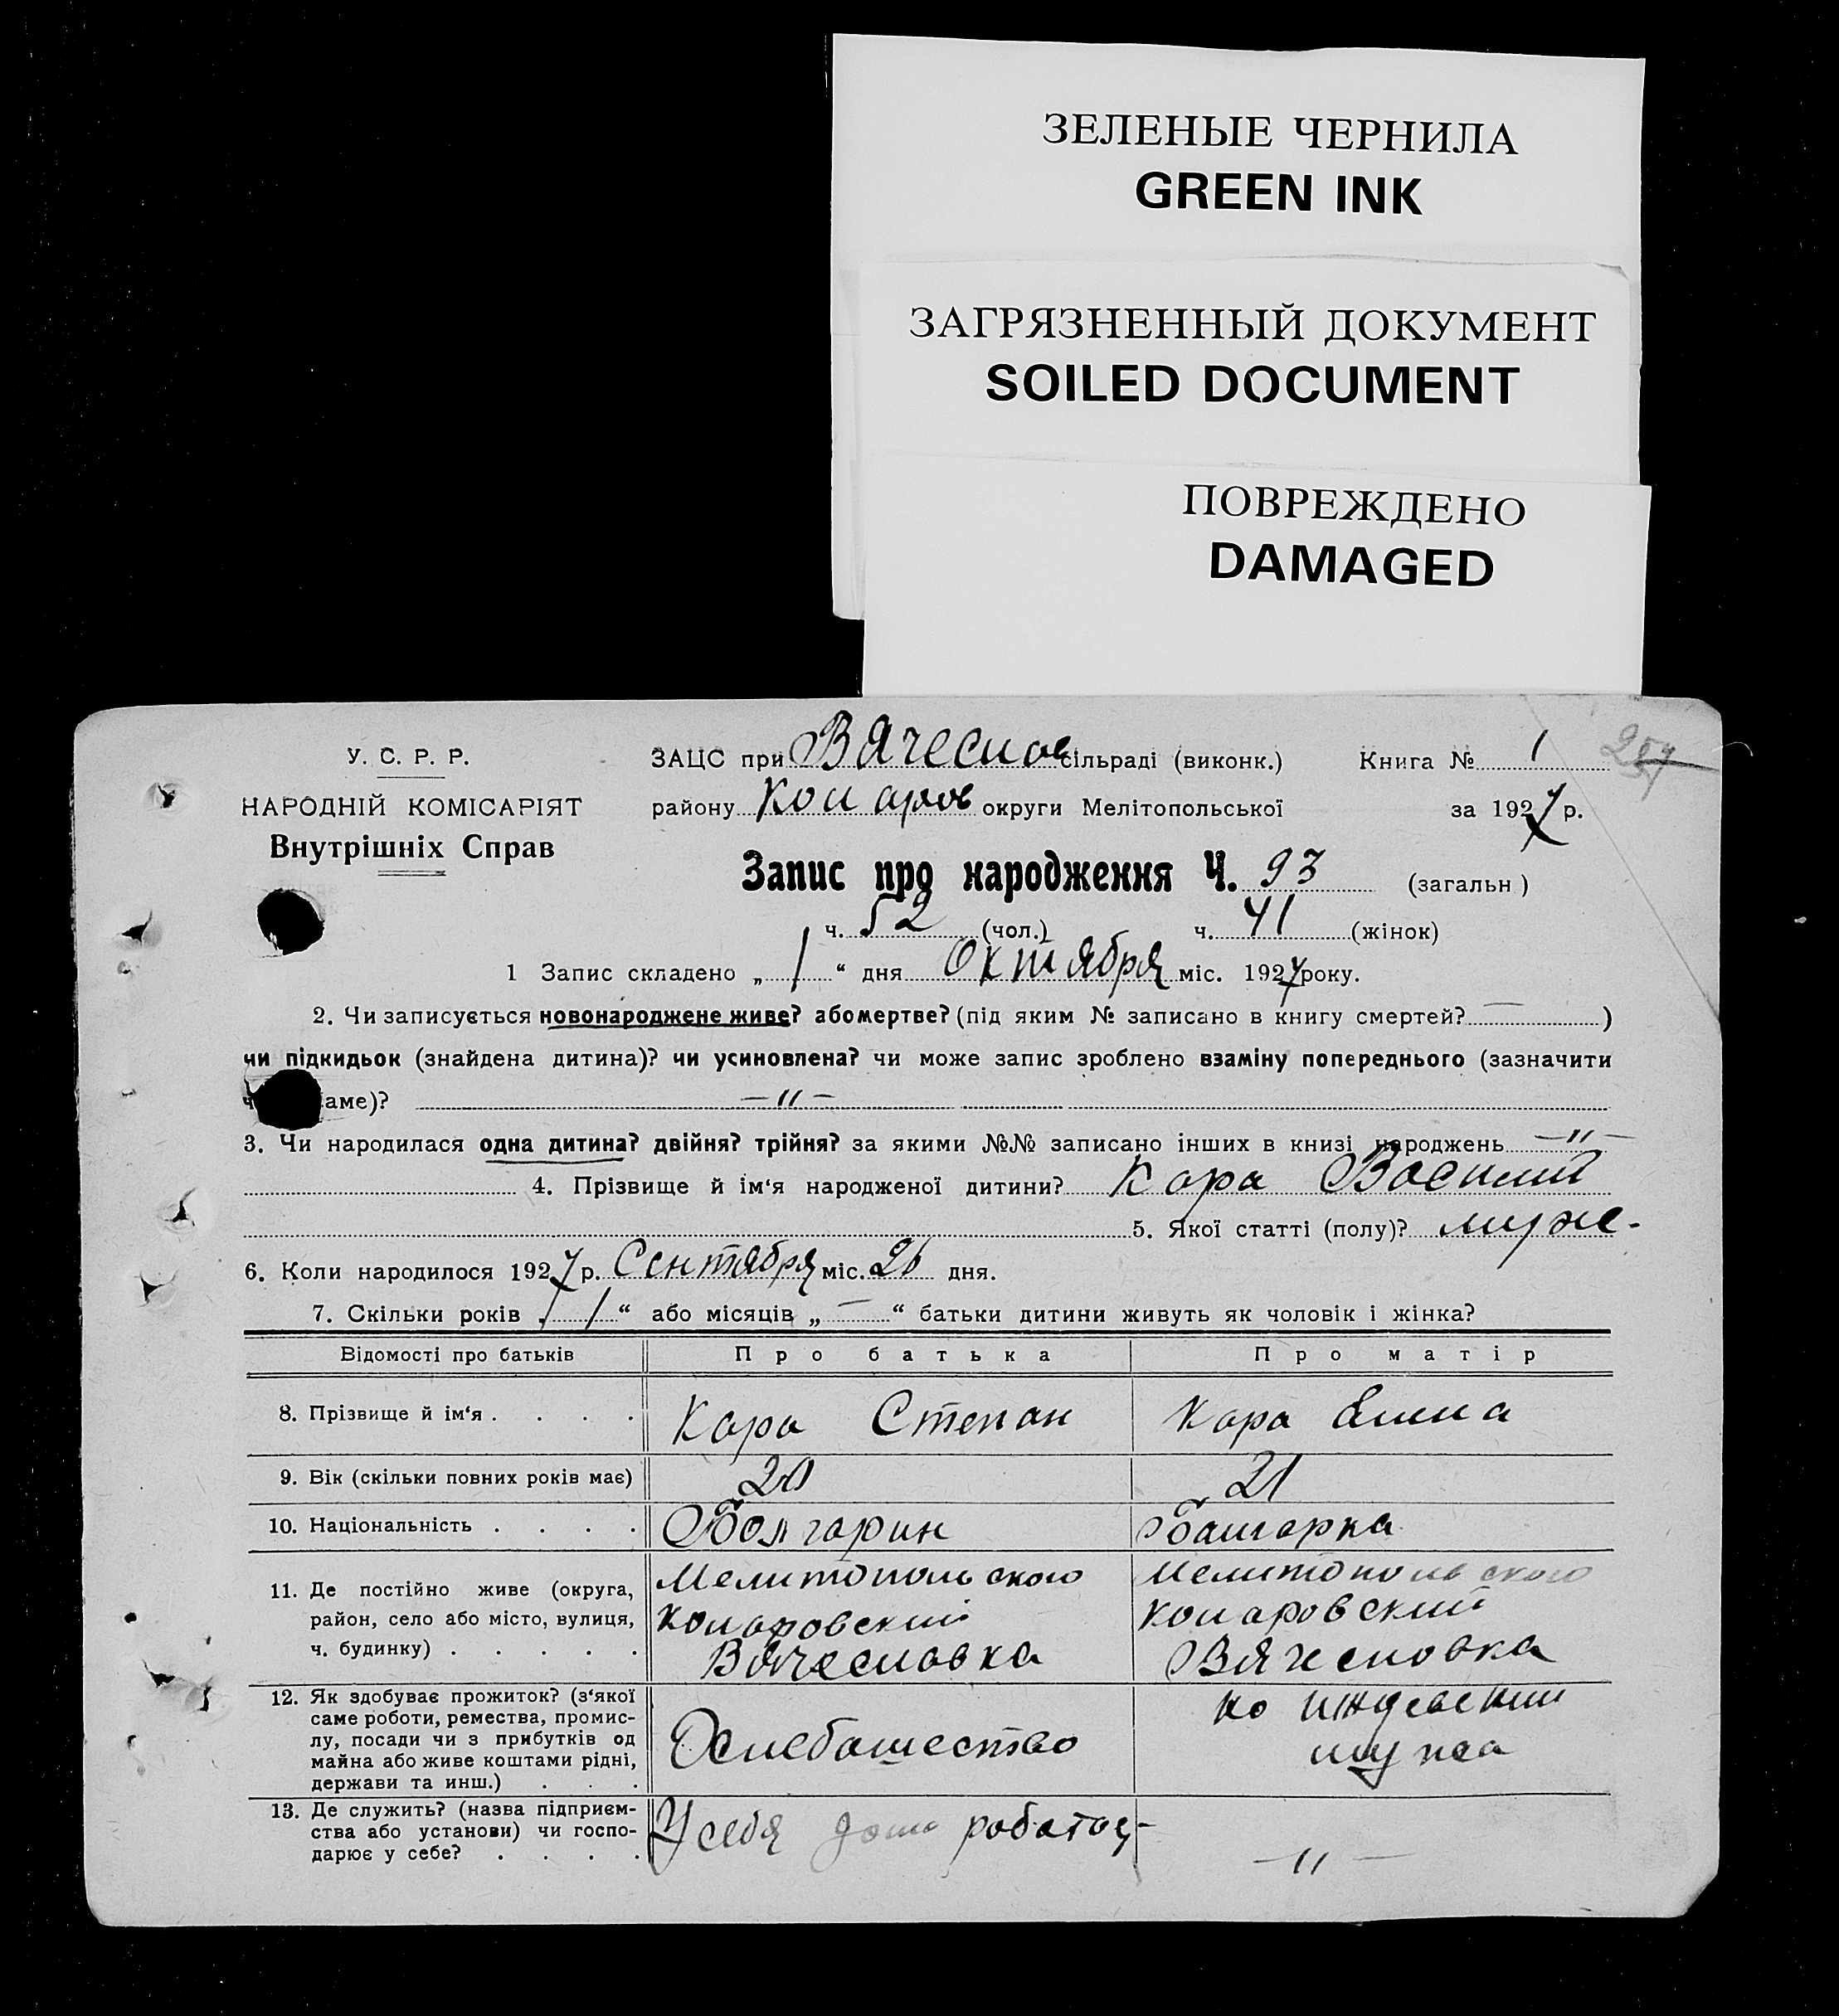 ЗЕЛЕНЫЕ ЧЕРНИЛА
GREEN INK
ЗАГРЯЗНЕННЫЙ ДОКУМЕНТ
SOILED DOCUMENT
ПОВРЕЖДЕНО
DAMAGED
У. С. Р. Р.
НАРОДНІЙ КОМІСАРІЯТ
Внутрішніх Справ
ЗАЦС при Вячеслов сільраді (виконк.) Книга № 1
району Комаров округи Мелітопольської за 1927 р.
Запис про народження Ч. 93 (загальн)
ч. 52 (чол.) ч. 41 (жінок)
1 Запис складено „ 1 “ дня Октября міс. 1927 року.
2. Чи записується новонароджене живе? або мертве? (під яким № записано в книгу смертей? — )
чи підкидьок (знайдена дитина)? чи усиновлена? чи може запис зроблено взаміну попереднього (зазначити
аме)? —〃—
3. Чи народилася одна дитина? двійня? трійня? за якими №№ записано інших в книзі народжень —〃—
4. Прізвище й ім‘я народженої дитини? Кара Василий
5. Якої статті (полу)? муже-
6. Коли народилося 1927 р. Сентября міс. 26 дня.
7. Скільки років „ 1 “ або місяців „ — “ батьки дитини живуть як чоловік і жінка?
Відомості про батьків Про батька Про матір
8. Прізвище й ім‘я . . . . Кара Степан Кара Елена
9. Вік (скільки повних років має) 20 21
10. Національність . . . . Болгарин Балгарка
11. Де постійно живе (округа, район, село або місто, вулиця, ч. будинку) . . . . .
Мелитопольского
Комаровский
Вячеславка
Мелитопольского
Комаровский
Вячесловка
12. Як здобуває прожиток? (з‘якої
саме роботи, ремества, промис-
лу, посади чи з прибутків од
майна або живе коштами рідні,
держави та инш.) . . .
Хлебашество
на иждевении
мужа
13. Де служить? (назва підприєм-
ства або установи) чи госпо-
дарює у себе? . . . .
У себя дома работа
—〃—